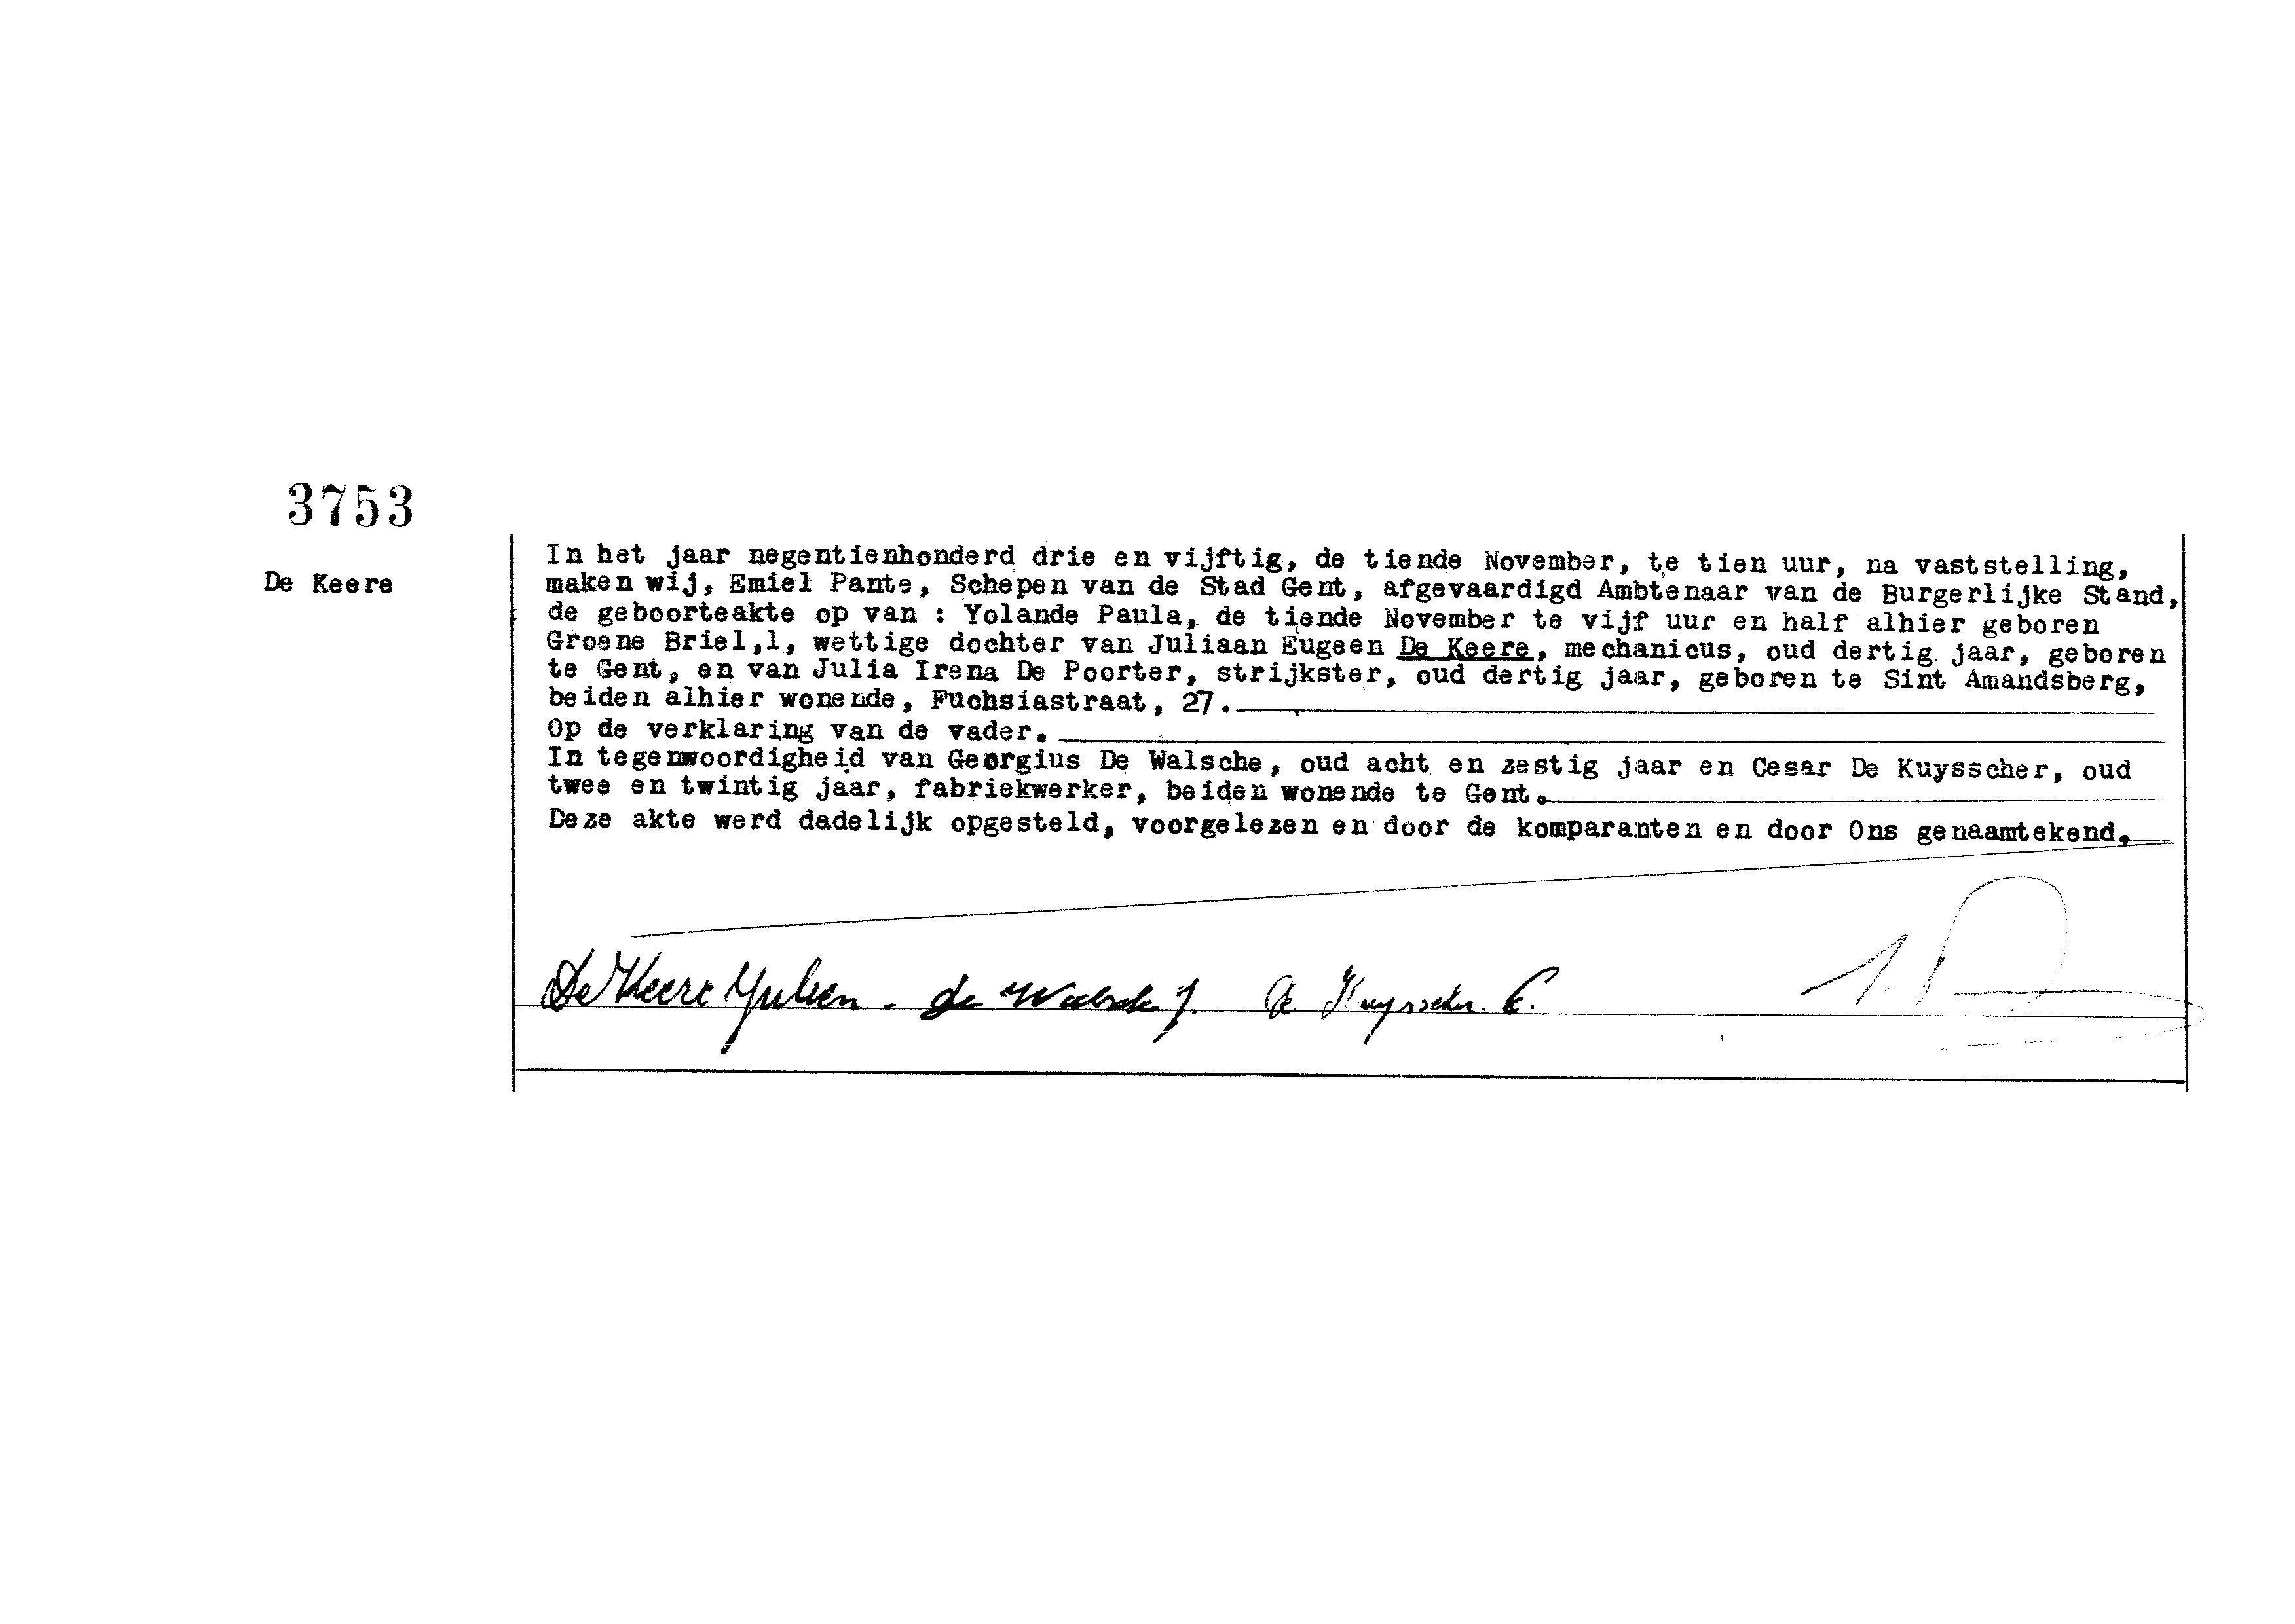 3753
De Keere
In het jaar negentienhonderd drie en vijftig, de tiende November, te tien uur, na vaststelling,
maken wij, Emiel Pante, Schepen van de Stad Gent, afgevaardigd Ambtenaar van de Burgerlijke Stand,
de geboorteakte op van : Yolande Paula, de tiende November te vijf uur en half alhier geboren
Groene Briel,1, wettige dochter van Juliaan Eugeen De Keere, mechanicus, oud dertig jaar, geboren
te Gent, en van Julia Irena De Poorter, strijkster, oud dertig jaar, geboren te Sint Amandsberg,
beiden alhier wonende, Fuchsiastraat, 27.
Op de verklaring van de vader.
In tegenwoordigheid van Georgius De Walsche, oud acht en zestig jaar en Cesar De Kuysscher, oud
twee en twintig jaar, fabriekwerker, beiden wonende te Gent.
Deze akte werd dadelijk opgesteld, voorgelezen en door de komparanten en door Ons genaamtekend.
De Keere Julien - de Walsche J. De Kuysscher C.